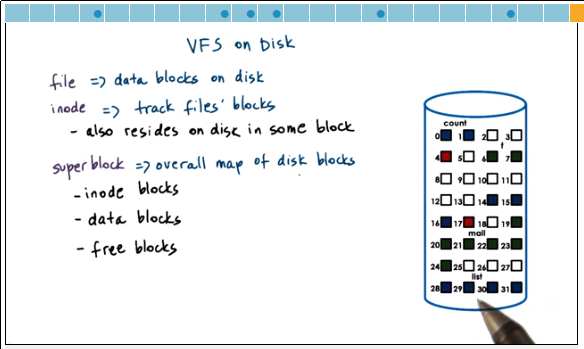 VFS on Disk
file => data blocks on disk
inode => track files' blocks
- also resides on disk in some block
superblock => overall map of disk blocks
- inode blocks
- data blocks
- free blocks
count
0 1 2 3
f
4 5 6 7
8 9 10 11
12 13 14 15
16 17 18 19
mail
20 21 22 23
24 25 26 27
list
28 29 30 31